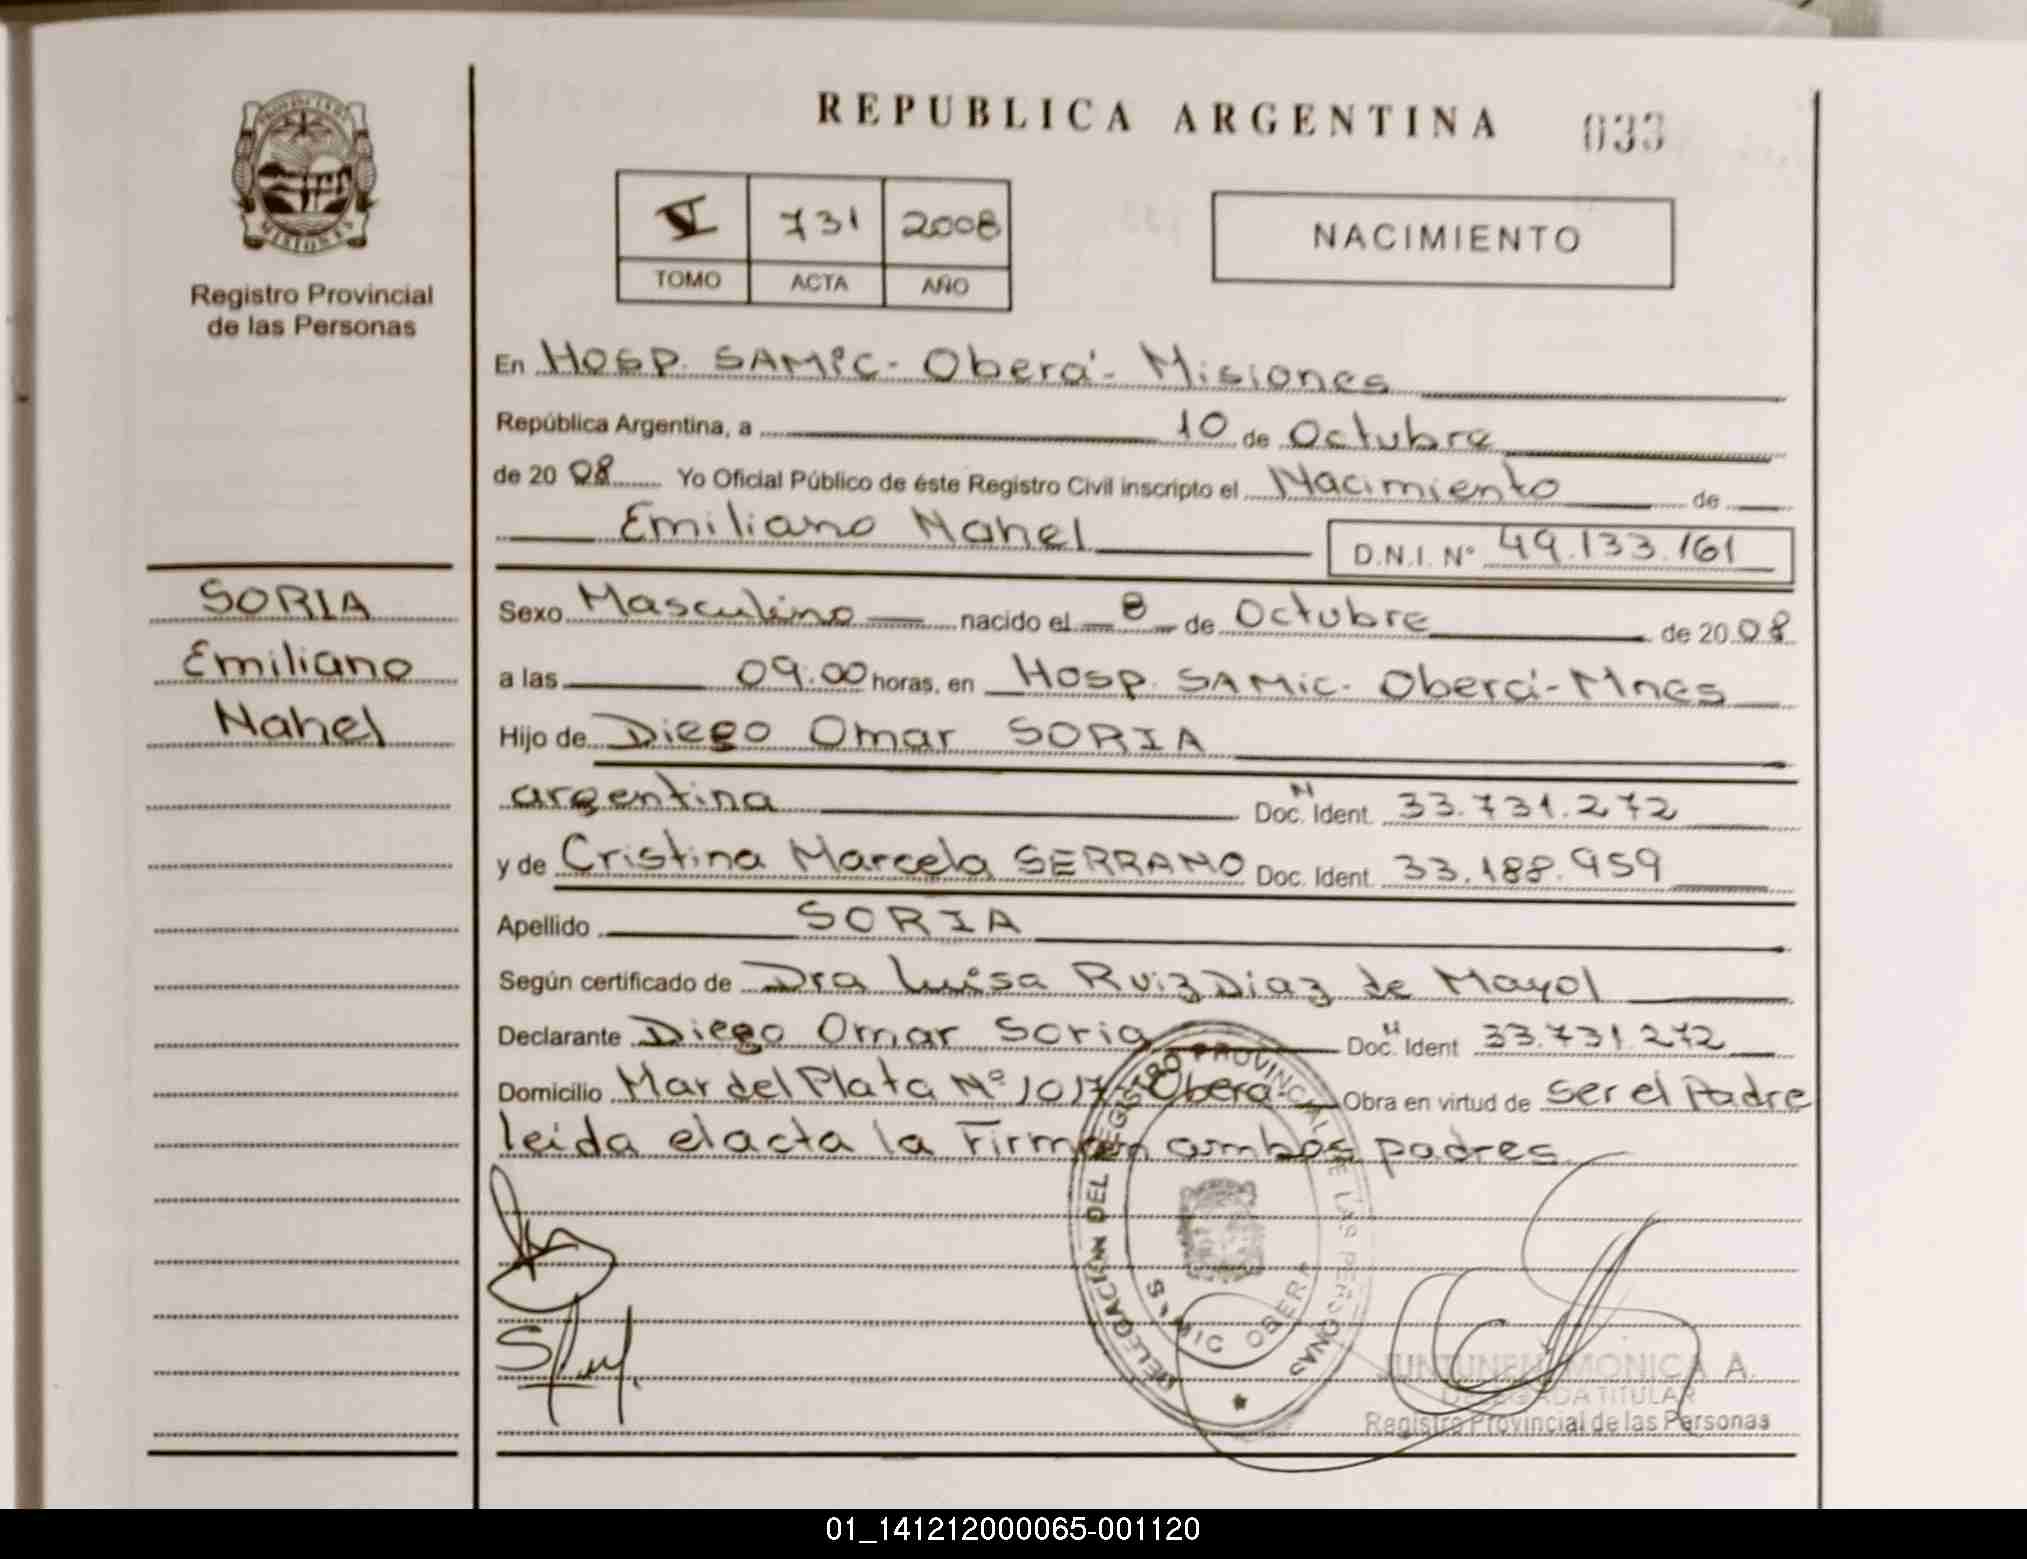 REPUBLICA ARGENTINA
033
PROVINCIA
MISIONES
Registro Provincial
de las Personas
V 731 2008
TOMO ACTA AÑO
NACIMIENTO
En Hosp. SAMIC - Oberá - Misiones
República Argentina, a 10 de Octubre
de 20 08 Yo Oficial Público de éste Registro Civil inscripto el Nacimiento de
Emiliano Nahel
D.N.I. Nº 49.133.161
SORIA
Emiliano
Nahel
Sexo Masculino nacido el 8 de Octubre de 20 08
a las 09:00 horas, en Hosp. SAMIC - Oberá - Mnes
Hijo de Diego Omar SORIA
argentina Doc. Ident. 33.731.272
y de Cristina Marcela SERRANO Doc. Ident. 33.188.959
Apellido SORIA
Según certificado de Dra Luisa Ruiz Diaz de Mayol
Declarante Diego Omar Soria Doc. Ident 33.731.272
Domicilio Mar del Plata Nº 1017 - Oberá - Obra en virtud de ser el Padre
leida el acta la Firman ambos padres
DELEGACION DEL REGISTRO PROVINCIAL DE LAS PERSONAS
SAMIC OBERA
JUNTUNEN MONICA A.
DELEGADA TITULAR
Registro Provincial de las Personas
01_141212000065-001120